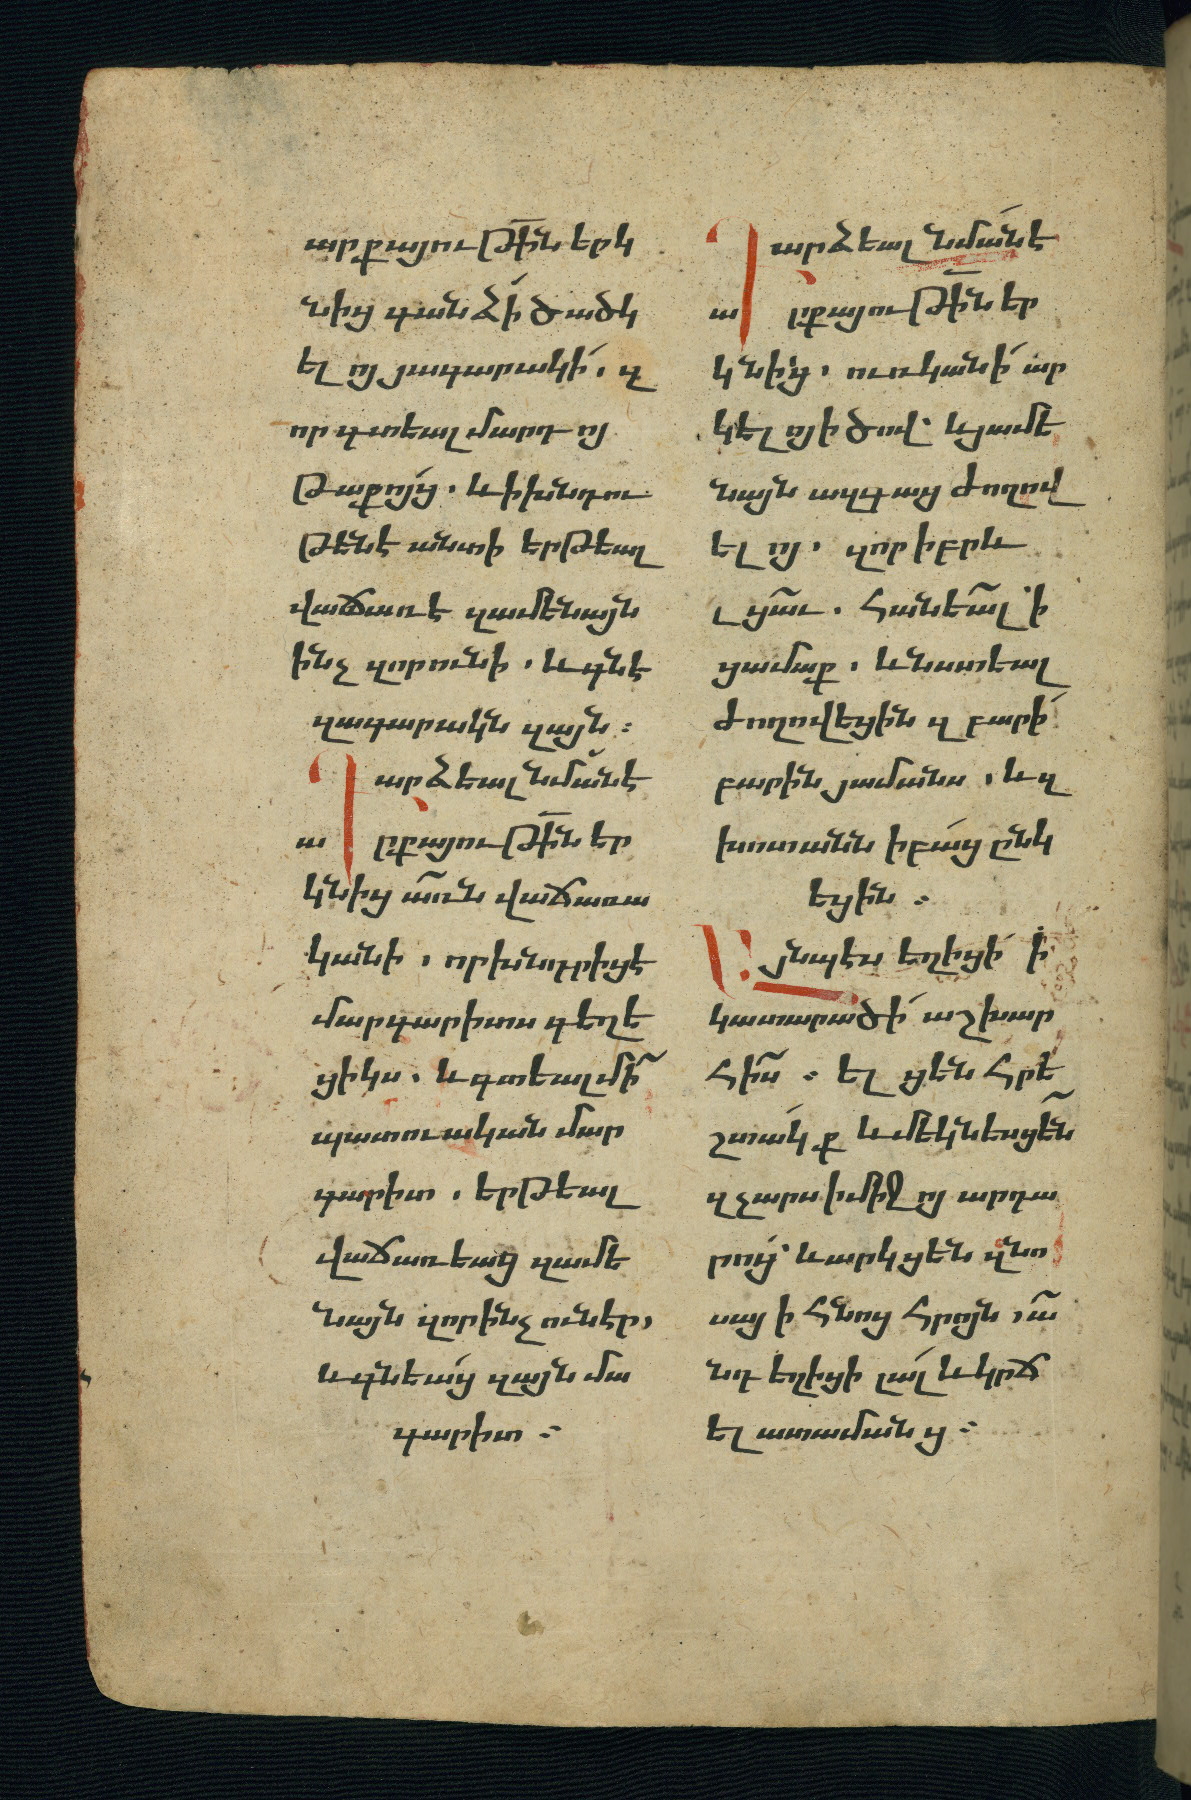 արքայութին երկ
նից գանձի ծածկ
ել ոյ յագարակի՛. զ
որ գտեալ մարդ ոյ
թաքոյց. և ի խնդու
թենէ անտի երթեալ
վաճառէ զամենայն
ինչ զոր ունի. և գնէ
զագարակն զայն։
Դարձեալ նմանէ
արքայութին եր
կնից առն վաճառա
կանի. որ խնդրիցէ
մարգարիտս գեղե
ցիկս. և գտեալ մի
պատուական մար
գարիտ. երթեալ
վաճառեաց զամե
նայն զոր ինչ ունէր,
և գնեաց զայն մա
գարիտ։
Դարձեալ նմանէ
արքայութին եր
կնից. ուռկանի՛ ար
կել ոյ ի ծով՝ և յամե
նայն ազգաց ժողով
ել ոյ. զոր իբրև
լցաւ. հանեալ՝ ի
ցամաք. և նստեալ
ժողովեցին զբարի՛
բարին յամանս. և զ
խոտանն ի բաց ընկ
եցին։
Այնպէս եղիցի՛ ի՛
կատարածի՛ աշխար
հիս։ ել ցեն հրե
շտակք և մեկնեսցեն
զչարս ի միջոյ արդա
րոց՝ և արկցեն զնո
սայ ի հնոց հրոյն, ա
նդ եղիցի լալ և կրճ
ել ատամանց։